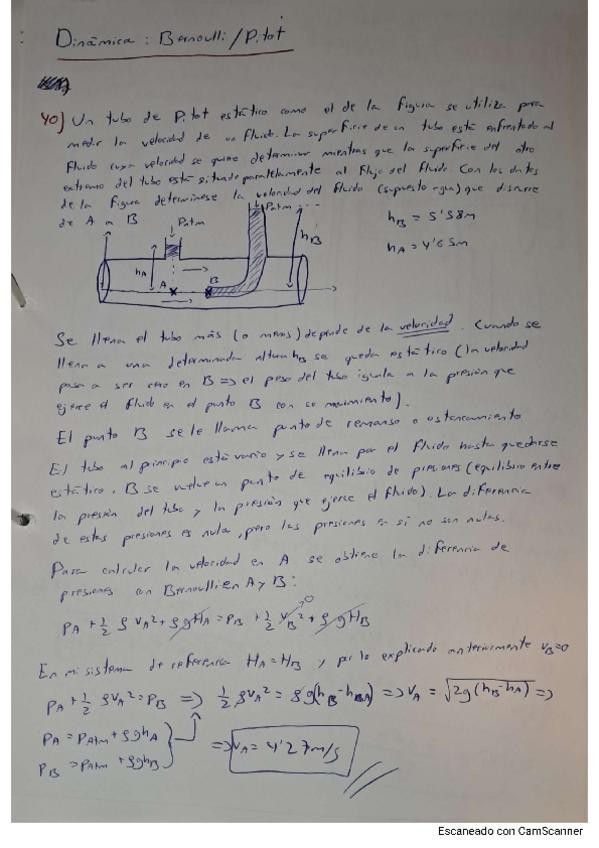 Dinámica: Bernoulli/Pitot
40) Un tubo de Pitot estático como el de la figura se utiliza para
medir la velocidad de un fluido. La superficie de un tubo está enfrentado al
fluido cuya velocidad se quiere determinar mientras que la superficie del otro
extremo del tubo está situado paralelamente al flujo del fluido. Con los datos
de la figura determínese la velocidad del fluido (supuesto agua) que discurre
de A a B
Patm
Patm
hB = 5'58m
hA = 4'65m
hA
hB
A
B
Se llena el tubo más (o menos) depende de la velocidad. Cuando se
llena a una determinada altura hB se queda estático (la velocidad
pasa a ser cero en B => el peso del tubo iguala a la presión que
ejerce el fluido en el punto B con su movimiento).
El punto B se le llama punto de remanso o estancamiento
El tubo al principio está vacío y se llena por el fluido hasta quedarse
estático. B se vuelve un punto de equilibrio de presiones (equilibrio entre
la presión del tubo y la presión que ejerce el fluido). La diferencia
de estas presiones es nula, pero las presiones en si no son nulas.
Para calcular la velocidad en A se obtiene la diferencia de
presiones con Bernoulli en A y B:
PA + 1/2 ρ vA² + ρgHA = PB + 1/2 vB² + ρgHB
0
En mi sistema de referencia HA = HB y por lo explicado anteriormente vB=0
PA + 1/2 ρvA² = PB => 1/2 ρvA² = ρg(hB-hA) => vA = √2g(hB-hA) =>
PA = PAtm + ρghA
PB = PAtm + ρghB
=> vA = 4'27m/s
Escaneado con CamScanner